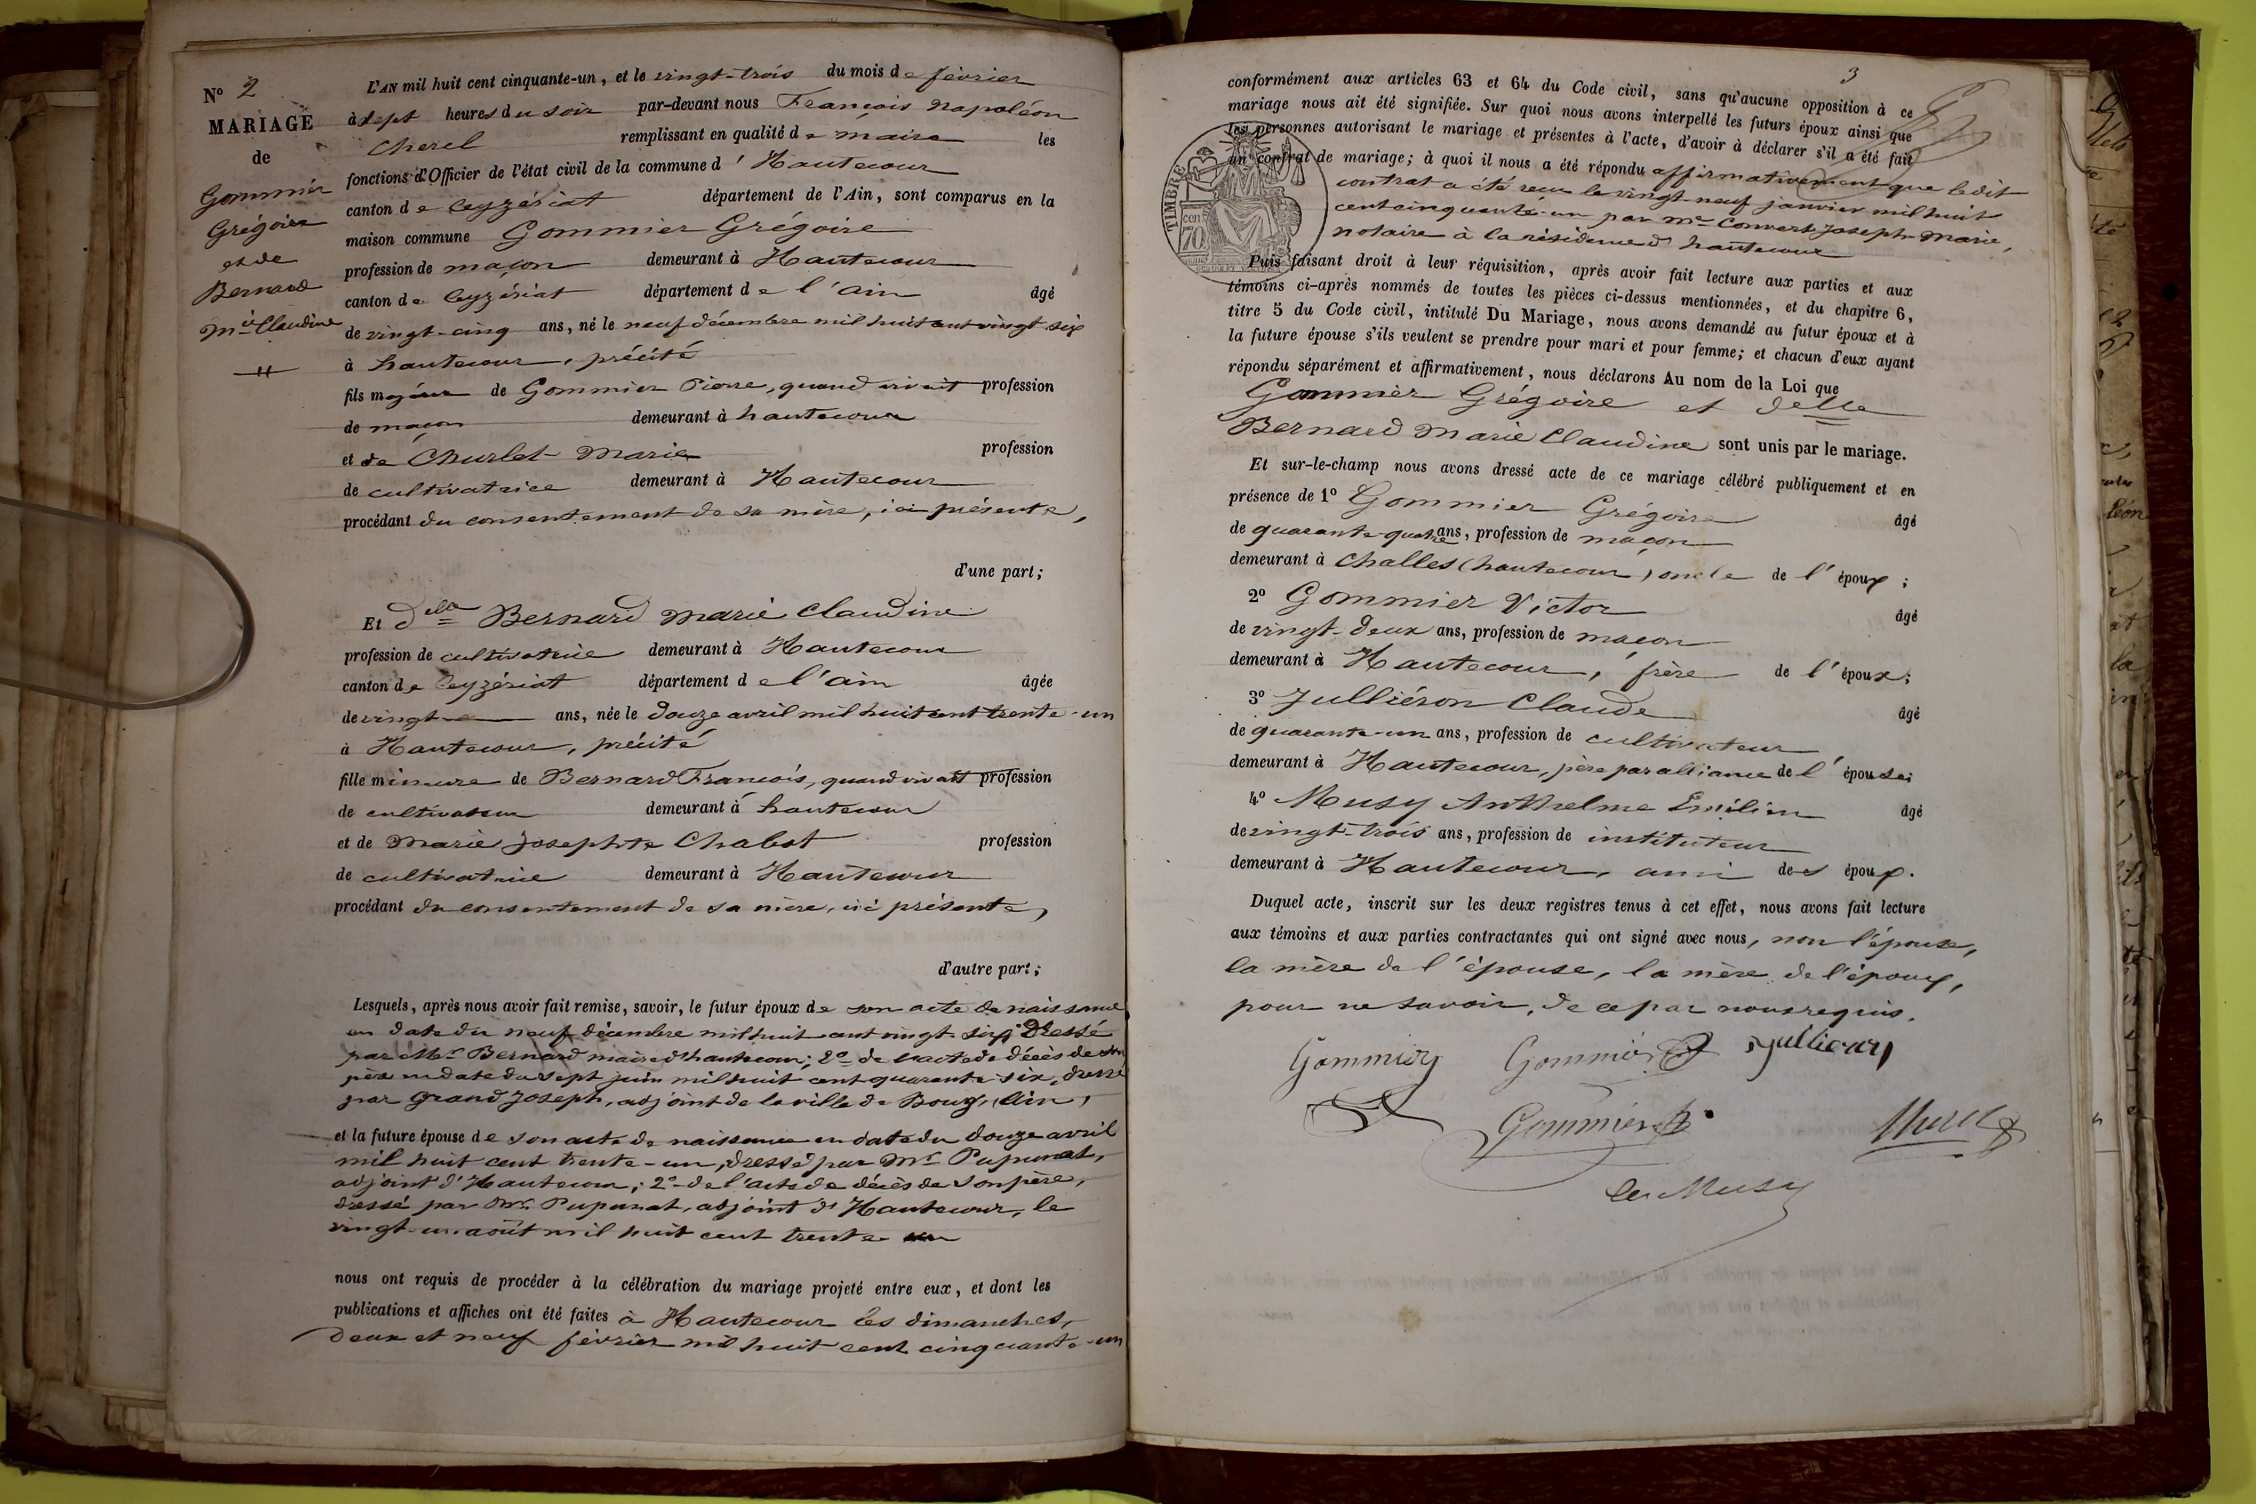 N° 2
MARIAGE
de
Gommier
Grégoire
et de
Bernard
Mie Claudine
L'AN mil huit cent cinquante-un, et le vingt-trois du mois de février
à sept heures du soir par-devant nous François Napoléon
Cherel remplissant en qualité de maire les
fonctions d'Officier de l'état civil de la commune d'Hautecour
canton de Ceyzériat département de l'Ain, sont comparus en la
maison commune Gommier Grégoire
profession de maçon demeurant à Hautecour
canton de Ceyzériat département de l'ain âgé
de vingt-cinq ans, né le neuf décembre mil huit cent vingt six
à hautecour, précité
fils majeur de Gommier Pierre, quand vivait profession
de maçon demeurant à hautecour
et de Churlet Marie profession
de cultivatrice demeurant à Hautecour
procédant du consentement de sa mère, ici présente,
d'une part;
Et delle Bernard Marie Claudine
profession de cultivatrice demeurant à Hautecour
canton de Ceyzériat département de l'ain âgée
de vingt ans, née le douze avril mil huit cent trente-un
à Hautecour, précité
fille mineure de Bernard François, quand vivait profession
de cultivateur demeurant à hautecour
et de Marie Josephte Chabot profession
de cultivatrice demeurant à Hautecour
procédant du consentement de sa mère, ici présente,
d'autre part;
Lesquels, après nous avoir fait remise, savoir, le futur époux de son acte de naissance
en date du neuf décembre mil huit cent vingt six, dressé
par Mr Bernard maire d'hautecour; 2° de l'acte de décès de son
père en date du sept juin mil huit cent quarante six, dressé
par Grand Joseph, adjoint de la ville de Bourg, (Ain,
et la future épouse de son acte de naissance en date du douze avril
mil huit cent trente-un, dressé par Mr Pupunat,
adjoint d'Hautecour; 2° de l'acte de décès de son père,
dressé par Mr Pupunat, adjoint d'Hautecour, le
vingt-un août mil huit cent trente
nous ont requis de procéder à la célébration du mariage projeté entre eux, et dont les
publications et affiches ont été faites à Hautecour les dimanches,
deux et neuf février mil huit cent cinquante-un
3
conformément aux articles 63 et 64 du Code civil, sans qu'aucune opposition à ce
mariage nous ait été signifiée. Sur quoi nous avons interpellé les futurs époux ainsi que
les personnes autorisant le mariage et présentes à l'acte, d'avoir à déclarer s'il a été fait
un contrat de mariage; à quoi il nous a été répondu affirmativement que ledit
contrat a été reçu le vingt-neuf janvier mil huit
cent cinquante-un par Me Convert Joseph-Marie,
notaire à la résidence d'hautecour
TIMBRE
70 cen
Puis faisant droit à leur réquisition, après avoir fait lecture aux parties et aux
témoins ci-après nommés de toutes les pièces ci-dessus mentionnées, et du chapitre 6,
titre 5 du Code civil, intitulé Du Mariage, nous avons demandé au futur époux et à
la future épouse s'ils veulent se prendre pour mari et pour femme; et chacun d'eux ayant
répondu séparément et affirmativement, nous déclarons Au nom de la Loi que
Gommier Grégoire et delle
Bernard Marie Claudine sont unis par le mariage.
Et sur-le-champ nous avons dressé acte de ce mariage célébré publiquement et en
présence de 1° Gommier Grégoire âgé
de quarante-quatre ans, profession de maçon
demeurant à Challes (hautecour) oncle de l'époux;
2° Gommier Victor âgé
de vingt-deux ans, profession de maçon
demeurant à Hautecour, frère de l'époux;
3° Julliéron Claude âgé
de quarante-un ans, profession de cultivateur
demeurant à Hautecour, père par alliance de l'épouse;
4° Musy Anthelme Emilien âgé
de vingt-trois ans, profession de instituteur
demeurant à Hautecour, ami des époux.
Duquel acte, inscrit sur les deux registres tenus à cet effet, nous avons fait lecture
aux témoins et aux parties contractantes qui ont signé avec nous, non l'épouse,
la mère de l'épouse, la mère de l'époux,
pour ne savoir, de ce par nous requis.
Gommier Gommier Jullieron
Gommier Cherel
Musy